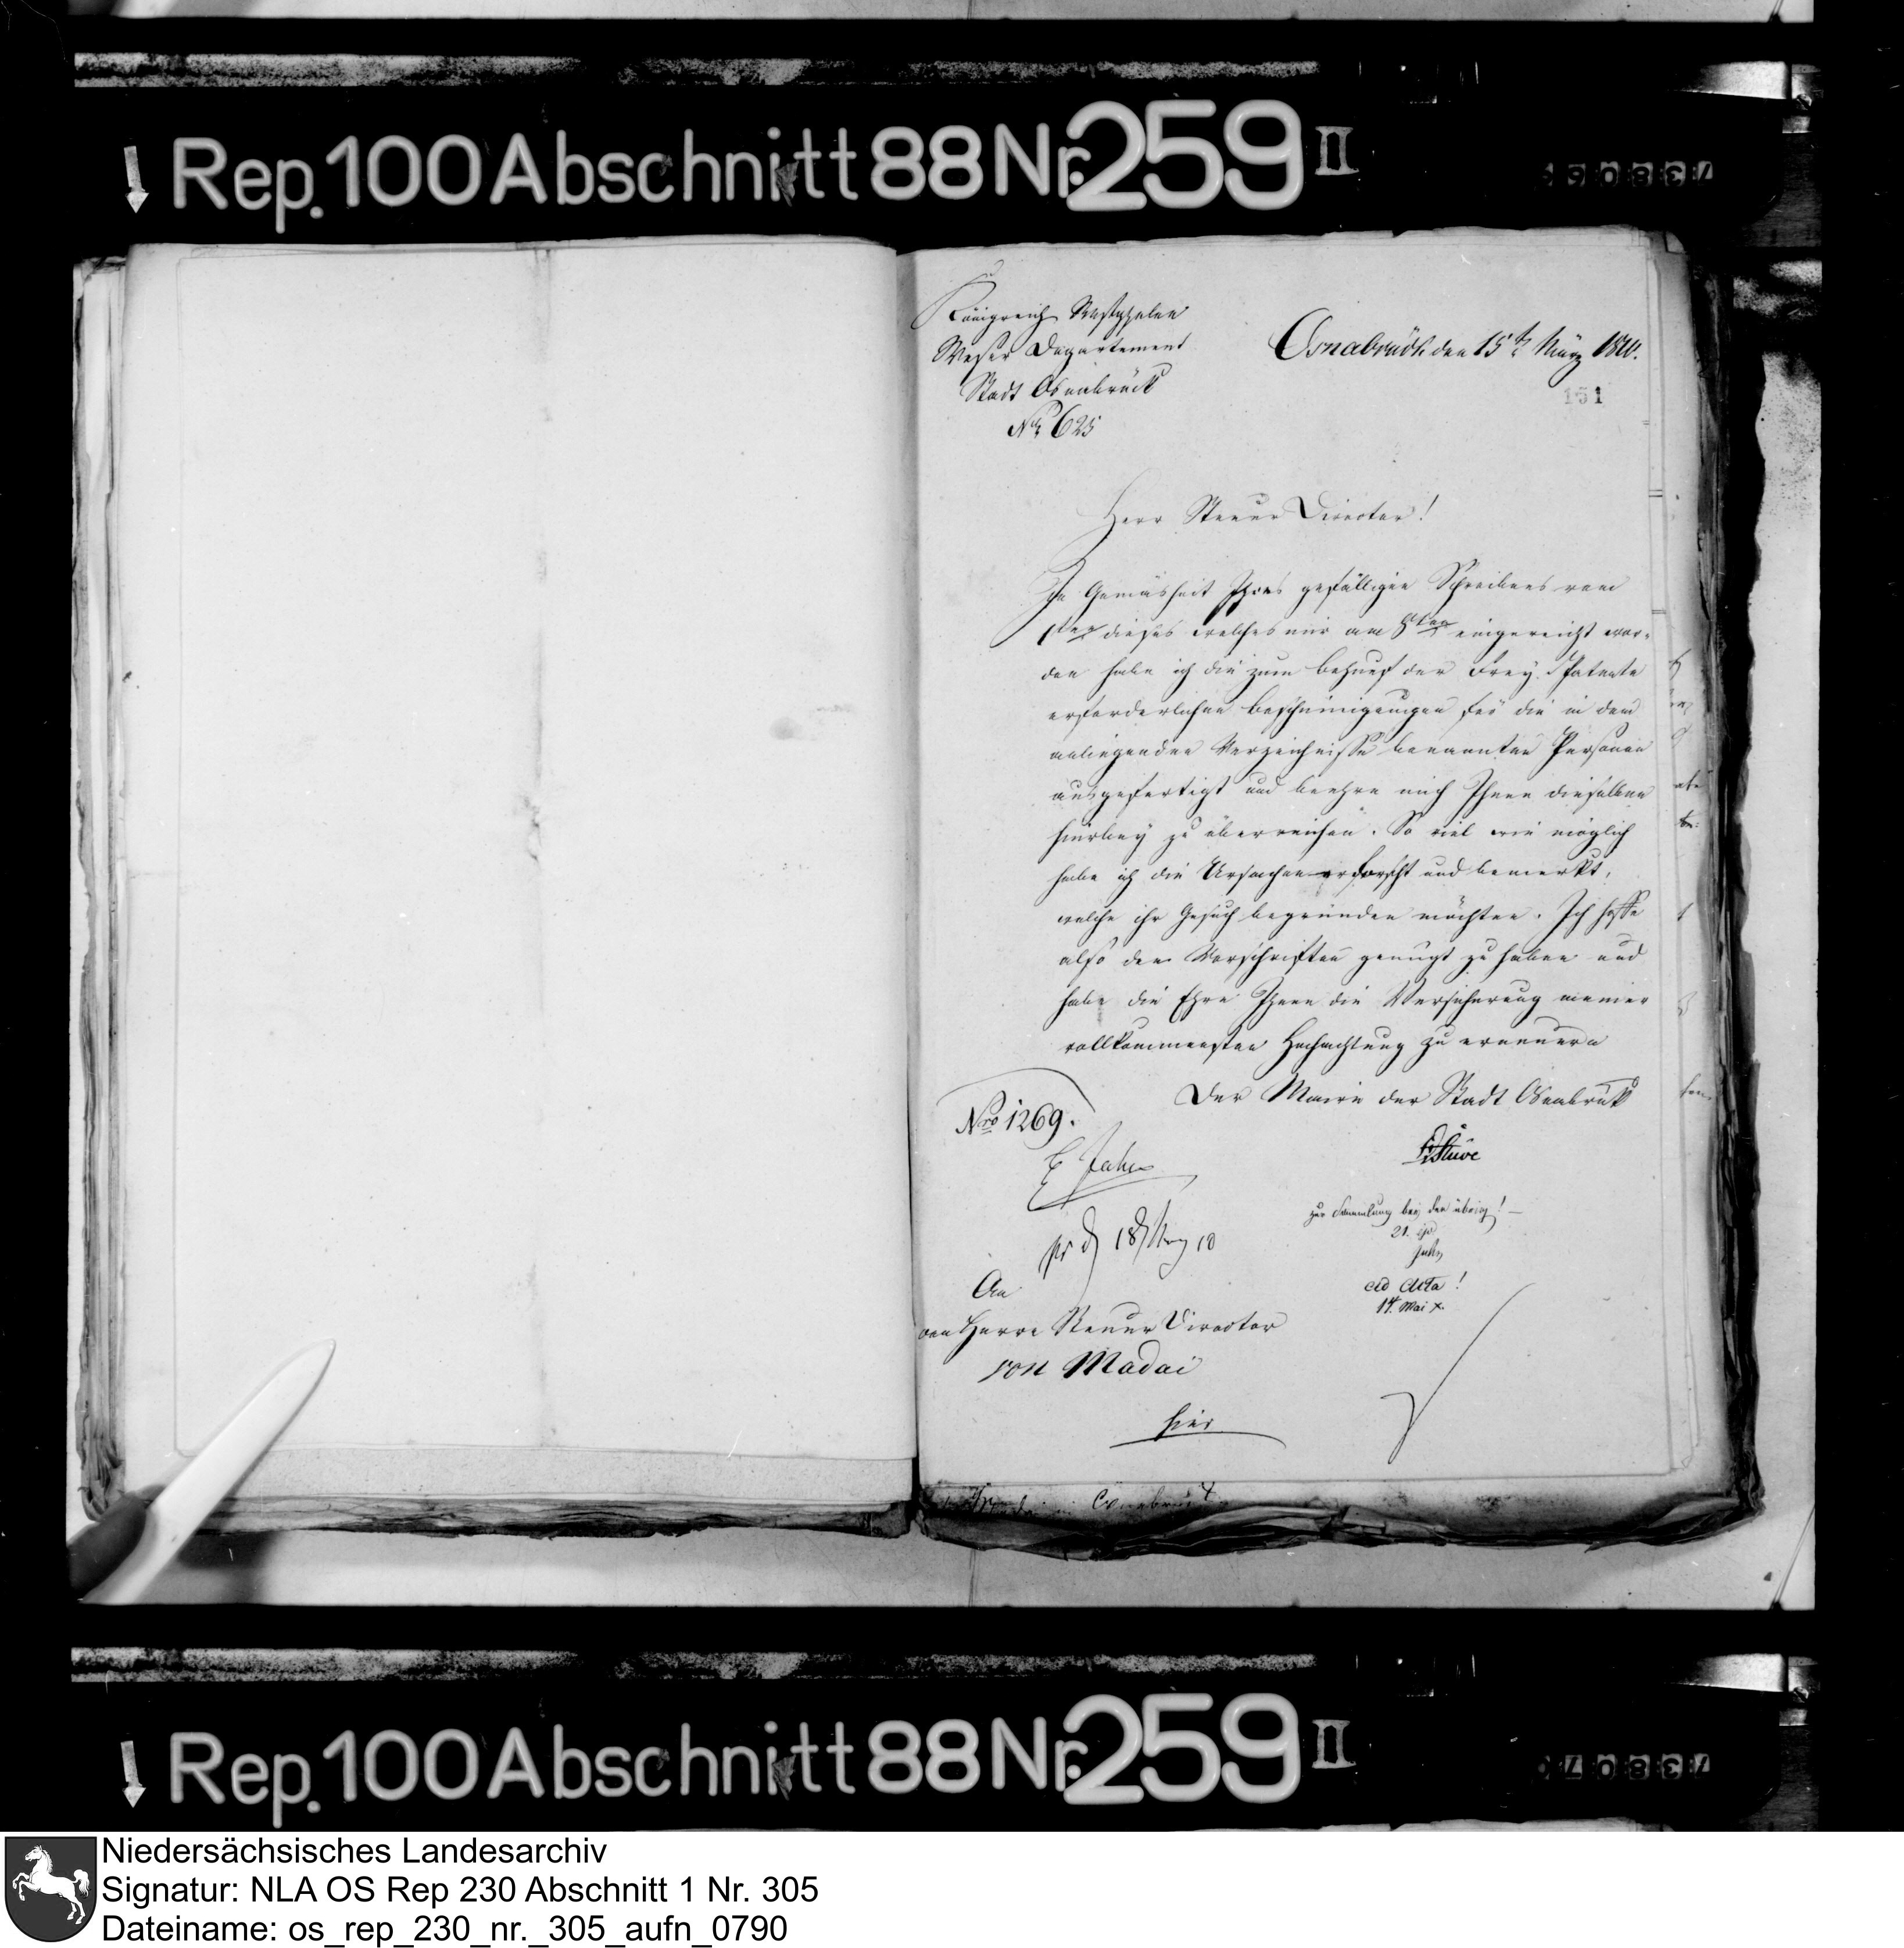 Rep. 100 Abschnitt 88 Nr. 259 II
Königreich Westphalen
Weser Departement
Stadt Osnabrück
No 625
Osnabrück den 15t März 1810.
151
Herr Steuer Director!
In Gemäsheit Ihres gefälligen Schreibens vom
1sten dieses welches mir am 8ten eingereicht wor-
den habe ich die zum Behuef der Frey-Patente
erforderlichen Bescheinigungen für die in dem
anliegenden Verzeichnisse benannten Personen
ausgefertigt und beehre mich Ihnen dieselben
hierbey zu überreichen. So viel wie möglich
habe ich die Ursachen erforscht und bemerkt,
welche ihr Gesuch begründen möchten. Ich hoffe
also den Vorschriften genügt zu haben und
habe die Ehre Ihnen die Versicherung meiner
vollkommensten Hochachtung zu erneuern
Der Maire der Stadt Osnabrük
Stüve
Nro 1269.
pr d 18 März 10
zur Sammlung bey den übrig! —
21.
ad Acta!
14. Mai
An
den Herrn Steuer Director
von Madai
hier
Osnabrück
Rep. 100 Abschnitt 88 Nr. 259 II
Niedersächsisches Landesarchiv
Signatur: NLA OS Rep 230 Abschnitt 1 Nr. 305
Dateiname: os_rep_230_nr._305_aufn_0790